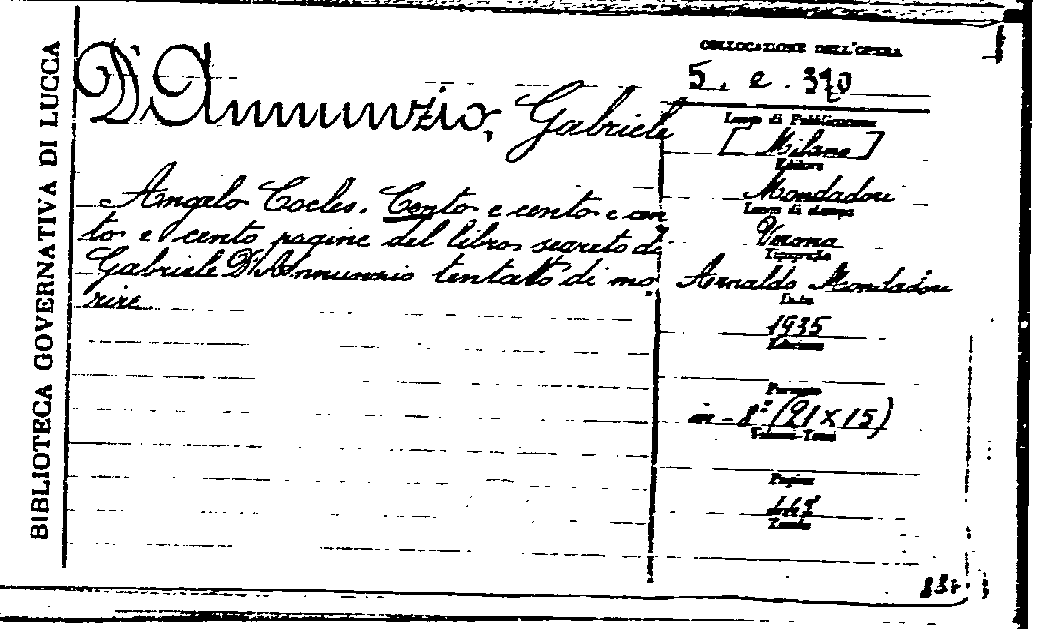 BIBLIOTECA GOVERNATIVA DI LUCCA
D'Annunzio, Gabriele
Angelo Cocles. Cento e cento e cen
to e cento pagine del libro segreto di
Gabriele D'Annunzio tentato di mo
rire
COLLOCAZIONE DELL'OPERA
5. e. 310
Luogo di Pubblicazione
[Milano]
Editore
Mondadori
Luogo di stampa
Verona
Tipografia
Arnaldo Mondadori
Data
1935
Edizione
Formato
in - 8° (21 x 15)
Volume-Tomo
Pagine
Tavole